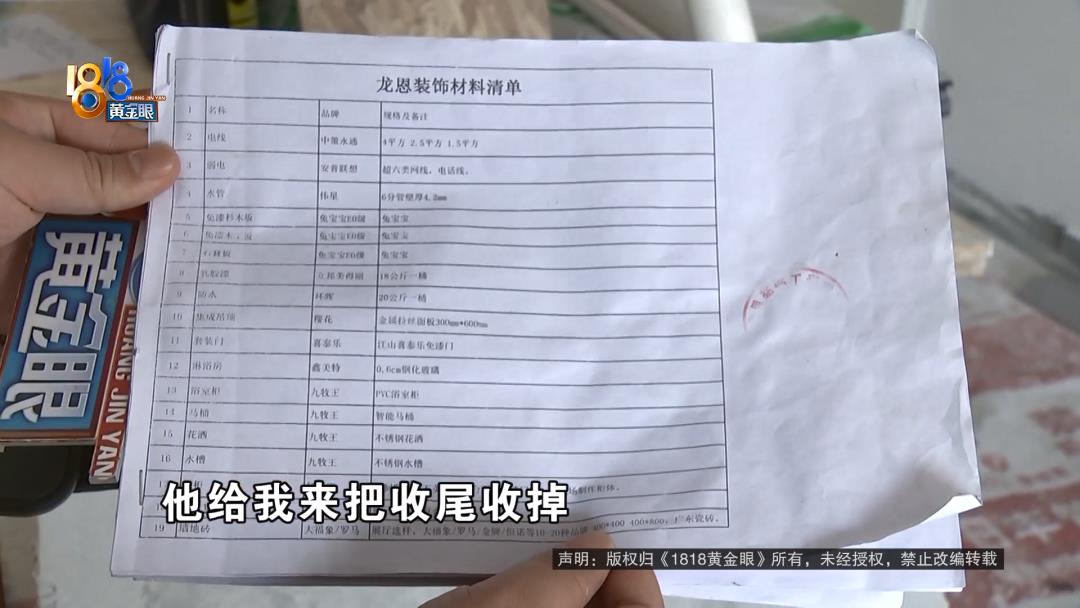 1818
HUANG JIN YAN
黄金眼
龙恩装饰材料清单
1 名称 品牌 规格及备注
2 电线 中策永通 4平方 2.5平方 1.5平方
3 弱电 安普联想 超六类网线,电话线。
4 水管 伟星 6分管壁厚4.2mm
5 免漆杉木板 兔宝宝E0级 兔宝宝
6 免漆木 板 兔宝宝E0级 兔宝宝
7 石膏板 兔宝宝E0级 兔宝宝
8 乳胶漆 立邦美得丽 18公斤一桶
9 防水 环晖 20公斤一桶
10 集成吊顶 樱花 金属拉丝面板300mm*600mm
11 套装门 喜泰乐 江山喜泰乐免漆门
12 淋浴房 鑫美特 0.6cm钢化玻璃
13 浴室柜 九牧王 PVC浴室柜
14 马桶 九牧王 智能马桶
15 花洒 九牧王 不锈钢花洒
16 水槽 九牧王 不锈钢水槽
场制作柜体。
19 墙地砖 大福象/罗马 展厅选样,大福象/罗马/金牌/恒诺等10-20种品牌 400*400 400*800,广东瓷砖。
黄金眼
HUANG JIN YAN
他给我来把收尾收掉
声明:版权归《1818黄金眼》所有,未经授权,禁止改编转载